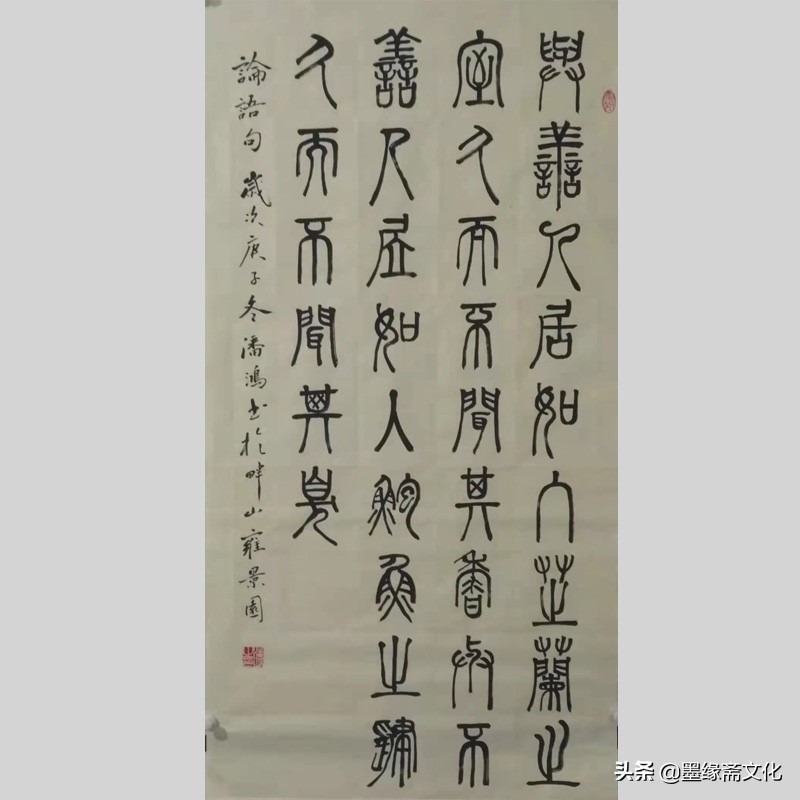 與善人居如入芝蘭之
室久而不聞其香與不
善人居如入鮑魚之肆
久而不聞其臭
論語句 歲次庚子冬潘鴻书於畔山雍景園
头条 @墨缘斋文化